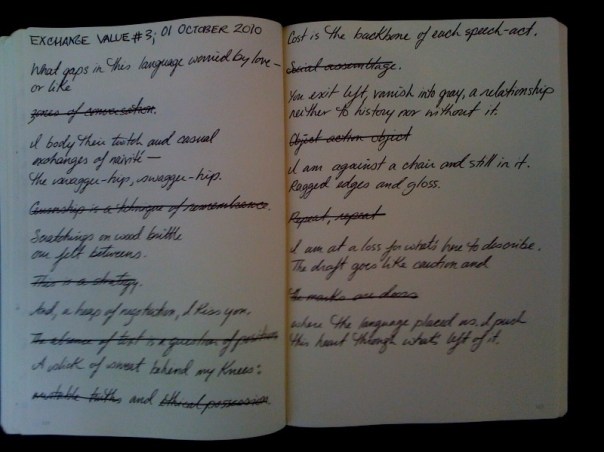 EXCHANGE VALUE #3; 01 OCTOBER 2010
What gaps in this language worried by love –
or like
zones of conversation.
I body their twitch and casual
exchanges of
the swagger-hip, swagger-hip.
Censorship is a technique of remembrance.
Scratchings on wood brittle
our felt betweens.
This is a strategy.
And, a heap of negotiation, I kiss you.
The absence of text is a question of position
A slick of sweat behind my knees:
mutable truths and ethical possession
Cost is the backbone of each speech-act.
Social assemblage.
You exit left, vanish into gray, a relationship
neither to history nor without it.
Object action object
I am against a chair and still in it.
Ragged edges and gloss.
Repeat, repeat
I am at a loss for what's here to describe.
The draft goes like caution and
the marks are doors
where the language placed us. I push
this heart through what's left of it.